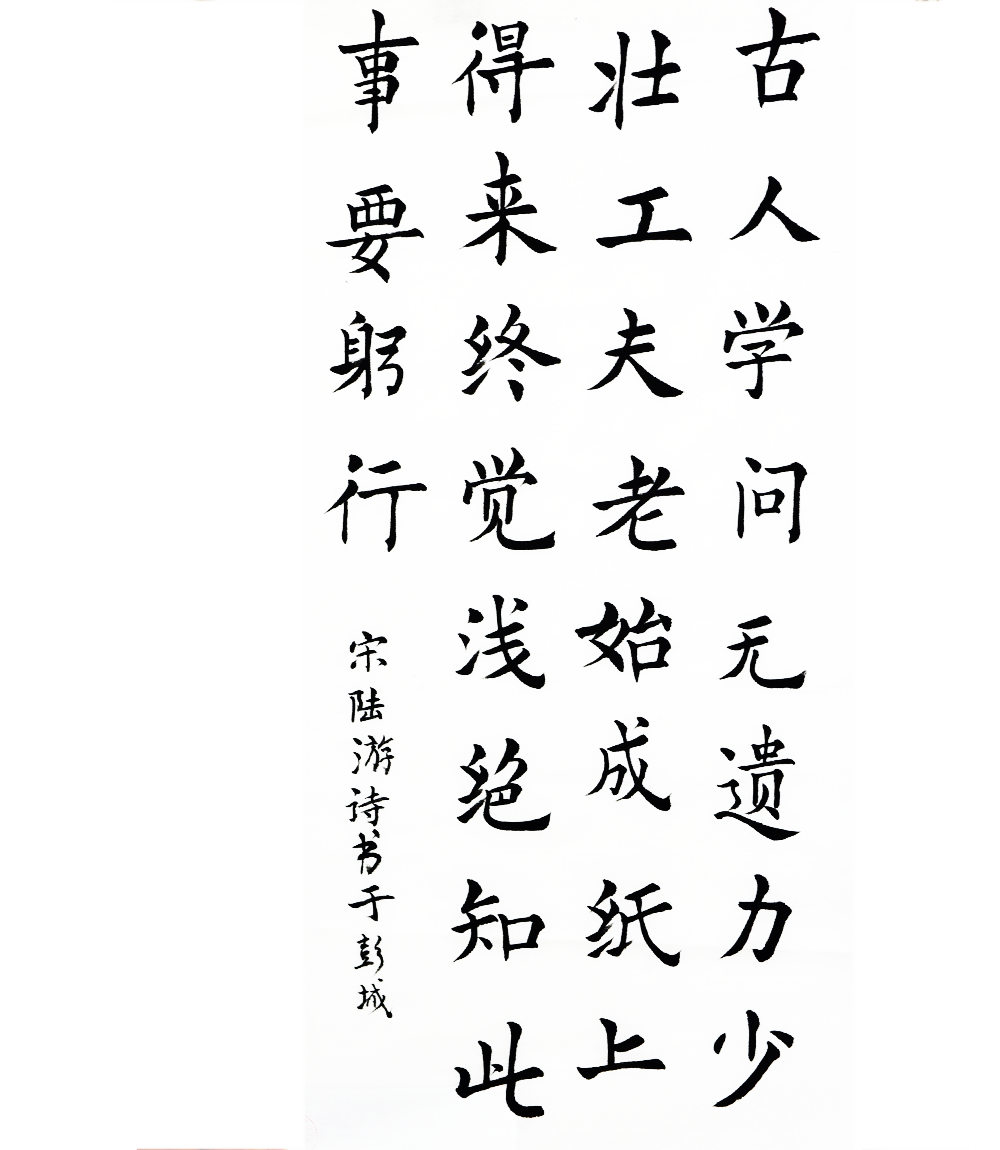 古人学问无遗力少
壮工夫老始成纸上
得来终觉浅绝知此
事要躬行
宋陆游诗书于彭城